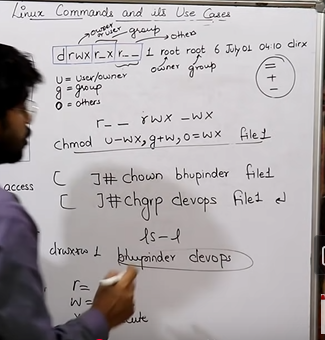 Linux Commands and its Use Cases
owner
or user
group
others
drwx r_x r__ 1 root root 6 July 01 04:10 dirx
owner group
U = User/owner
g = group
O = others
=
+
-
r__ rwx -wx
chmod u-wx, g+w, o=wx file1
[ ]# chown bhupinder file1
access
[ ]# chgrp devops file1
ls-l
drwxrw 1 bhupinder devops
r=
w=